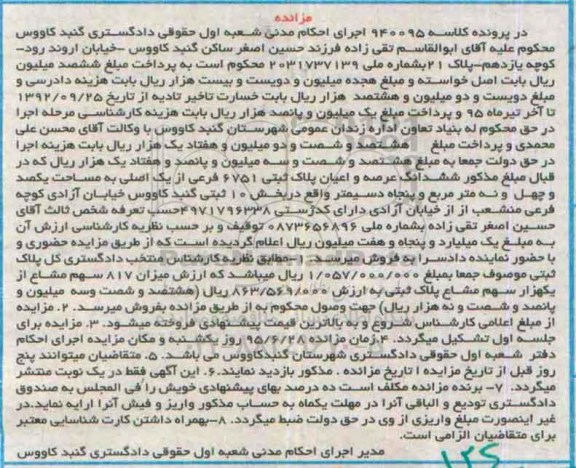 مزانده
در پرونده کلاسه ۹۴۰۰۹۵ اجرای احکام مدنی شعبه اول حقوقی دادگستری گنبد کاووس
محکوم علیه آقای ابوالقاسم تقی زاده فرزند حسین اصغر ساکن گنبد کاووس -خیابان اروند رود-
کوچه یازدهم-پلاک ۲۱بشماره ملی ۲۰۳۱۷۳۷۱۳۹ محکوم است به پرداخت مبلغ ششصد میلیون
ریال بابت اصل خواسته و مبلغ هجده میلیون و دویست و بیست هزار ریال بابت هزینه دادرسی و
مبلغ دویست و دو میلیون و هشتصد هزار ریال بابت خسارت تاخیر تادیه از تاریخ ۱۳۹۲/۰۹/۲۵
تا آخر تیرماه ۹۵ و پرداخت مبلغ یک میلیون و پانصد هزار ریال بابت هزینه کارشناسی مرحله اجرا
در حق محکوم له بنیاد تعاون اداره زندان عمومی شهرستان گنبد کاووس با وکالت آقای محسن علی
محمدی و پرداخت مبلغ هشتصد و شصت و دو میلیون و هفتاد یک هزار ریال بابت هزینه اجرا
در حق دولت جمعا به مبلغ هشتصد و شصت و سه میلیون و پانصد و هفتاد یک هزار ریال که در
قبال مبلغ مذکور ششدانگ عرصه و اعیان پلاک ثبتی ۶۷۵۱ فرعی از یک اصلی به مساحت یکصد
و چهل و نه متر مربع و پنجاه دسیمتر واقع دربخش ۱۰ ثبتی گنبد کاووس خیابان آزادی کوچه
فرعی منشعب از از خیابان آزادی دارای کدرستی ۴۹۷۱۷۹۶۳۳۸حسب تعرفه شخص ثالث آقای
حسین اصغر تقی زاده بشماره ملی ۰۸۷۳۶۵۶۸۹۶ توقیف و بر حسب نظریه کارشناسی ارزش آن
به مبلغ یک میلیارد و پنجاه و هفت میلیون ریال اعلام گردیده است که از طریق مزایده حضوری و
با حضور نماینده دادسرا به فروش میرسد. ۱-مطابق نظریه کارشناس منتخب دادگستری کل پلاک
ثبتی موصوف جمعا بمبلغ ۱/۰۵۷/۰۰۰/۰۰۰ ریال میباشد که ارزش میزان ۸۱۷ سهم مشاع از
یکهزار سهم مشاع پلاک ثبتی به ارزش ۸۶۳/۵۶۹/۰۰۰ ریال (هشتصد و شصت وسه میلیون و
پانصد و شصت و نه هزار ریال) جهت وصول محکوم به از طریق مزایده بفروش میرسد. ۲. مزایده
از مبلغ اعلامی کارشناس شروع و به بالاترین قیمت پیشنهادی فروخته میشود. ۳. مزایده برای
جلسه اول تشکیل میگردد. ۴.زمان مزایده ۹۵/۶/۲۸ روز یکشنبه و مکان مزایده اجرای احکام
دفتر شعبه اول حقوقی دادگستری شهرستان گنبدکاووس می باشد. ۵. متقاضیان میتوانند پنج
روز قبل از تاریخ مزایده ا تاریخ مزایده . مذکور بازدید نمایند. ۶. این آگهی فقط در یک نوبت منتشر
میگردد. ۷- برنده مزایده مکلف است ده درصد بهای پیشنهادی خویش را فی المجلس به صندوق
دادگستری تودیع و الباقی آنرا در مهلت یکماه به حساب مذکور واریز و فیش آنرا ارایه نماید.در
غیر اینصورت مبلغ واریزی از وی در حق دولت ضبط میگردد. ۸-بهمراه داشتن کارت شناسایی معتبر
برای متقاضیان الزامی است.
مدیر اجرای احکام مدنی شعبه اول حقوقی دادگستری گنبد کاووس